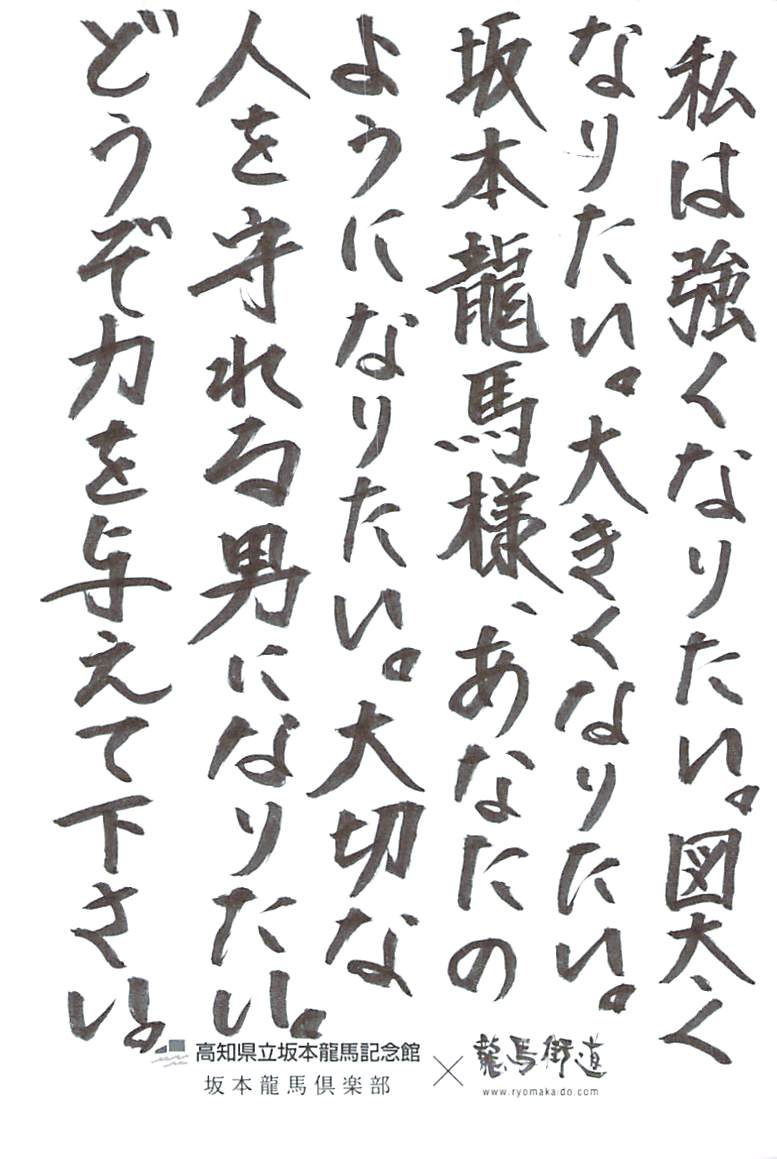 私は強くなりたい。図太く
なりたい。大きくなりたい。
坂本龍馬様、あなたの
ようになりたい。大切な
人を守れる男になりたい。
どうぞ力を与えて下さい。
高知県立坂本龍馬記念館
坂本龍馬倶楽部
×
龍馬街道
www.ryomakaido.com